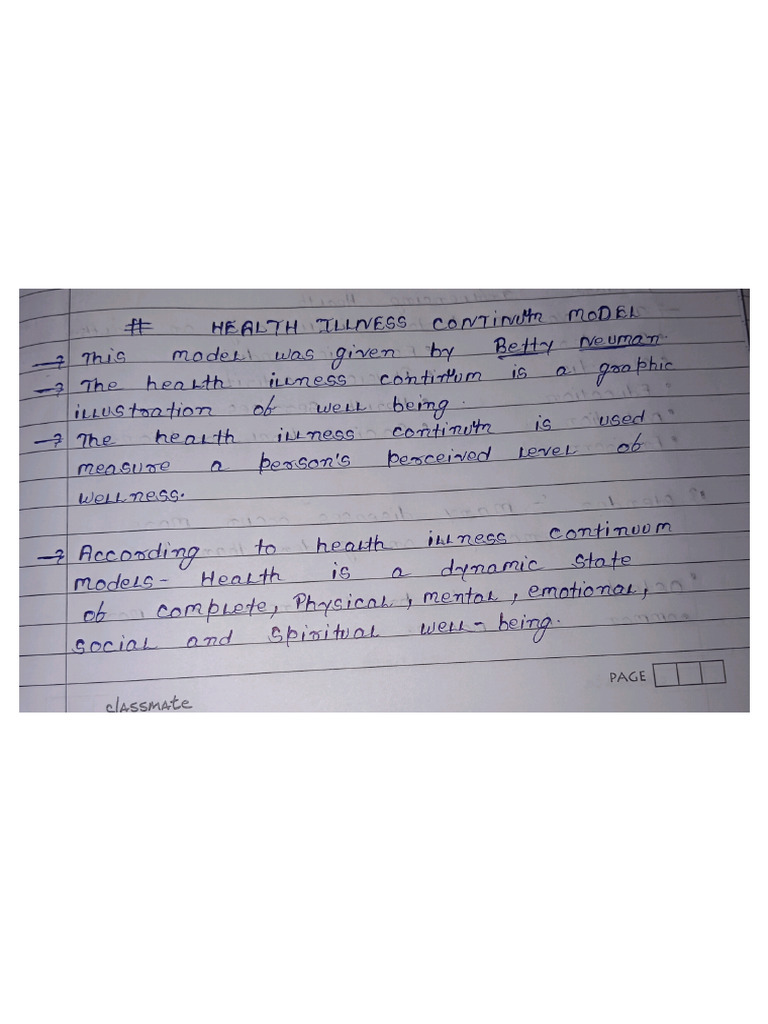 # HEALTH ILLNESS CONTINUM MODEL
→ This model was given by Betty Neuman.
→ The health illness continuum is a graphic
illustration of well being.
→ The health illness continum is used
measure a person's perceived level of
wellness.
→ According to health illness continuum
models- Health is a dynamic state
of complete, Physical, mental, emotional,
social and spiritual well-being.
PAGE
classmate